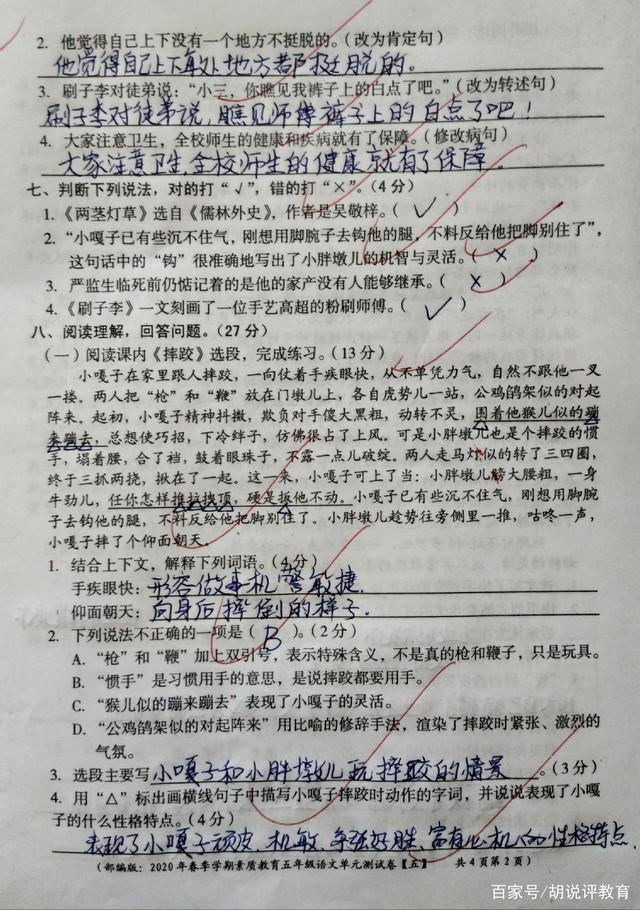 2. 他觉得自己上下没有一个地方不挺脱的。(改为肯定句)
他觉得自己上下每处地方都挺脱的。
3. 刷子李对徒弟说:“小三,你瞧见我裤子上的白点了吧。”(改为转述句)
刷子李对徒弟说,瞧见师傅裤子上的白点了吧!
4. 大家注意卫生,全校师生的健康和疾病就有了保障。(修改病句)
大家注意卫生,全校师生的健康就有了保障。
七、判断下列说法,对的打“√”,错的打“×”。(4分)
1.《两茎灯草》选自《儒林外史》,作者是吴敬梓。( √ )
2. “小嘎子已有些沉不住气,刚想用脚腕子去钩他的腿,不料反给他把脚别住了”,
这句话中的“钩”很准确地写出了小胖墩儿的机智与灵活。( × )
3. 严监生临死前仍惦记着的是他的家产没有人能够继承。( × )
4.《刷子李》一文刻画了一位手艺高超的粉刷师傅。( √ )
八、阅读理解,回答问题。(27分)
(一)阅读课内《摔跤》选段,完成练习。(13分)
小嘎子在家里跟人摔跤,一向仗着手疾眼快,从不单凭力气,自然不跟他一叉
一搂。两人把“枪”和“鞭”放在门墩儿上,各自虎势儿一站,公鸡鸽架似的对起
阵来。起初,小嘎子精神抖擞,欺负对手傻大黑粗,动转不灵,围着他猴儿似的蹦
来蹦去,总想使巧招,下冷绊子,仿佛很占了上风。可是小胖墩儿也是个摔跤的惯
手,塌着腰,合了裆,鼓着眼珠子,不露一点儿破绽。两人走马灯似的转了三四圈,
终于三抓两挠,揪在了一起。这一来,小嘎子可上了当:小胖墩儿膀大腰粗,一身
牛劲儿,任你怎样推拉拽顶,硬是扳他不动。小嘎子已有些沉不住气,刚想用脚腕
子去钩他的腿,不料反给他把脚别住了。小胖墩儿趁势往旁侧里一推,咕咚一声,
小嘎子摔了个仰面朝天。
1. 结合上下文,解释下列词语。(4分)
手疾眼快:形容做事机警敏捷.
仰面朝天:向身后摔倒的样子.
2. 下列说法不正确的一项是( B )。(2分)
A. “枪”和“鞭”加上双引号,表示特殊含义,不是真的枪和鞭子,只是玩具。
B. “惯手”是习惯用手的意思,是说摔跤都要用手。
C. “猴儿似的蹦来蹦去”表现了小嘎子的灵活。
D. “公鸡鸽架似的对起阵来”用比喻的修辞手法,渲染了摔跤时紧张、激烈的
气氛。
3. 选段主要写小嘎子和小胖墩儿玩摔跤的情景。(3分)
4. 用“△”标出画横线句子中描写小嘎子摔跤时动作的字词,并说说表现了小嘎
子的什么性格特点。(4分)
表现了小嘎子顽皮、机敏、争强好胜、富有心机的性格特点.
(部编版:2020年春季学期素质教育五年级语文单元测试卷【五】 共4页第2页)
百家号/胡说评教育